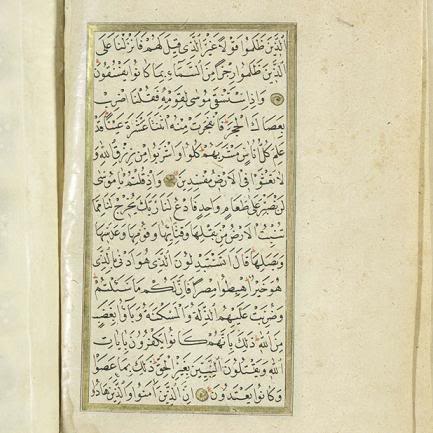 الَّذِينَ ظَلَمُوا قَوْلًا غَيْرَ الَّذِي قِيلَ لَهُمْ فَاَنْزَلْنَا عَلَى
الَّذِينَ ظَلَمُوا رِجْزًا مِنَ السَّمَاءِ بِمَا كَانُوا يَفْسُقُونَ
وَاِذِ اسْتَسْقٰى مُوسٰى لِقَوْمِهِ فَقُلْنَا اضْرِبْ
بِعَصَاكَ الْحَجَرَ فَانْفَجَرَتْ مِنْهُ اثْنَتَا عَشْرَةَ عَيْنًا قَدْ
عَلِمَ كُلُّ اُنَاسٍ مَشْرَبَهُمْ كُلُوا وَاشْرَبُوا مِنْ رِزْقِ اللهِ وَ
لَا تَعْثَوْا فِي الْاَرْضِ مُفْسِدِينَ وَاِذْ قُلْتُمْ يَا مُوسٰى
لَنْ نَصْبِرَ عَلٰى طَعَامٍ وَاحِدٍ فَادْعُ لَنَا رَبَّكَ يُخْرِجْ لَنَا مِمَّا
تُنْبِتُ الْاَرْضُ مِنْ بَقْلِهَا وَقِثَّائِهَا وَفُومِهَا وَعَدَسِهَا
وَبَصَلِهَا قَالَ اَتَسْتَبْدِلُونَ الَّذِي هُوَ اَدْنٰى بِالَّذِي
هُوَ خَيْرٌ اِهْبِطُوا مِصْرًا فَاِنَّ لَكُمْ مَا سَاَلْتُمْ
وَضُرِبَتْ عَلَيْهِمُ الذِّلَّةُ وَالْمَسْكَنَةُ وَبَاؤُا بِغَضَبٍ
مِنَ اللهِ ذٰلِكَ بِاَنَّهُمْ كَانُوا يَكْفُرُونَ بِاٰيَاتِ
اللهِ وَيَقْتُلُونَ النَّبِيِّينَ بِغَيْرِ الْحَقِّ ذٰلِكَ بِمَا عَصَوْا
وَكَانُوا يَعْتَدُونَ اِنَّ الَّذِينَ اٰمَنُوا وَالَّذِينَ هَادُوا